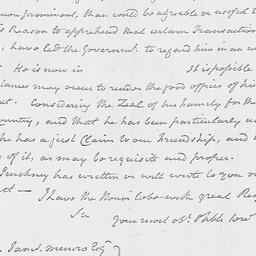 more prominent, than would be agreable or useful t
is Reason to apprehend that certain Transactions
, have led the Government to regard him in an un
He is now in It is possible
stances may occur to render the good offices of his
nt. Considering the Zeal of his family for the
ountry, and that he has been particularly u
he has a just Claim to our Friendship, and
of it, as may be requisite and proper.
Pinckney has written or will write to you
ct — I have the Honor to be with great Res
Sir your most obt. & hble serv
James Monroe Esqr